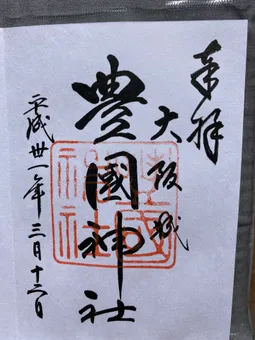 奉拝
大阪城
豊國神社
平成卅一年三月十二日